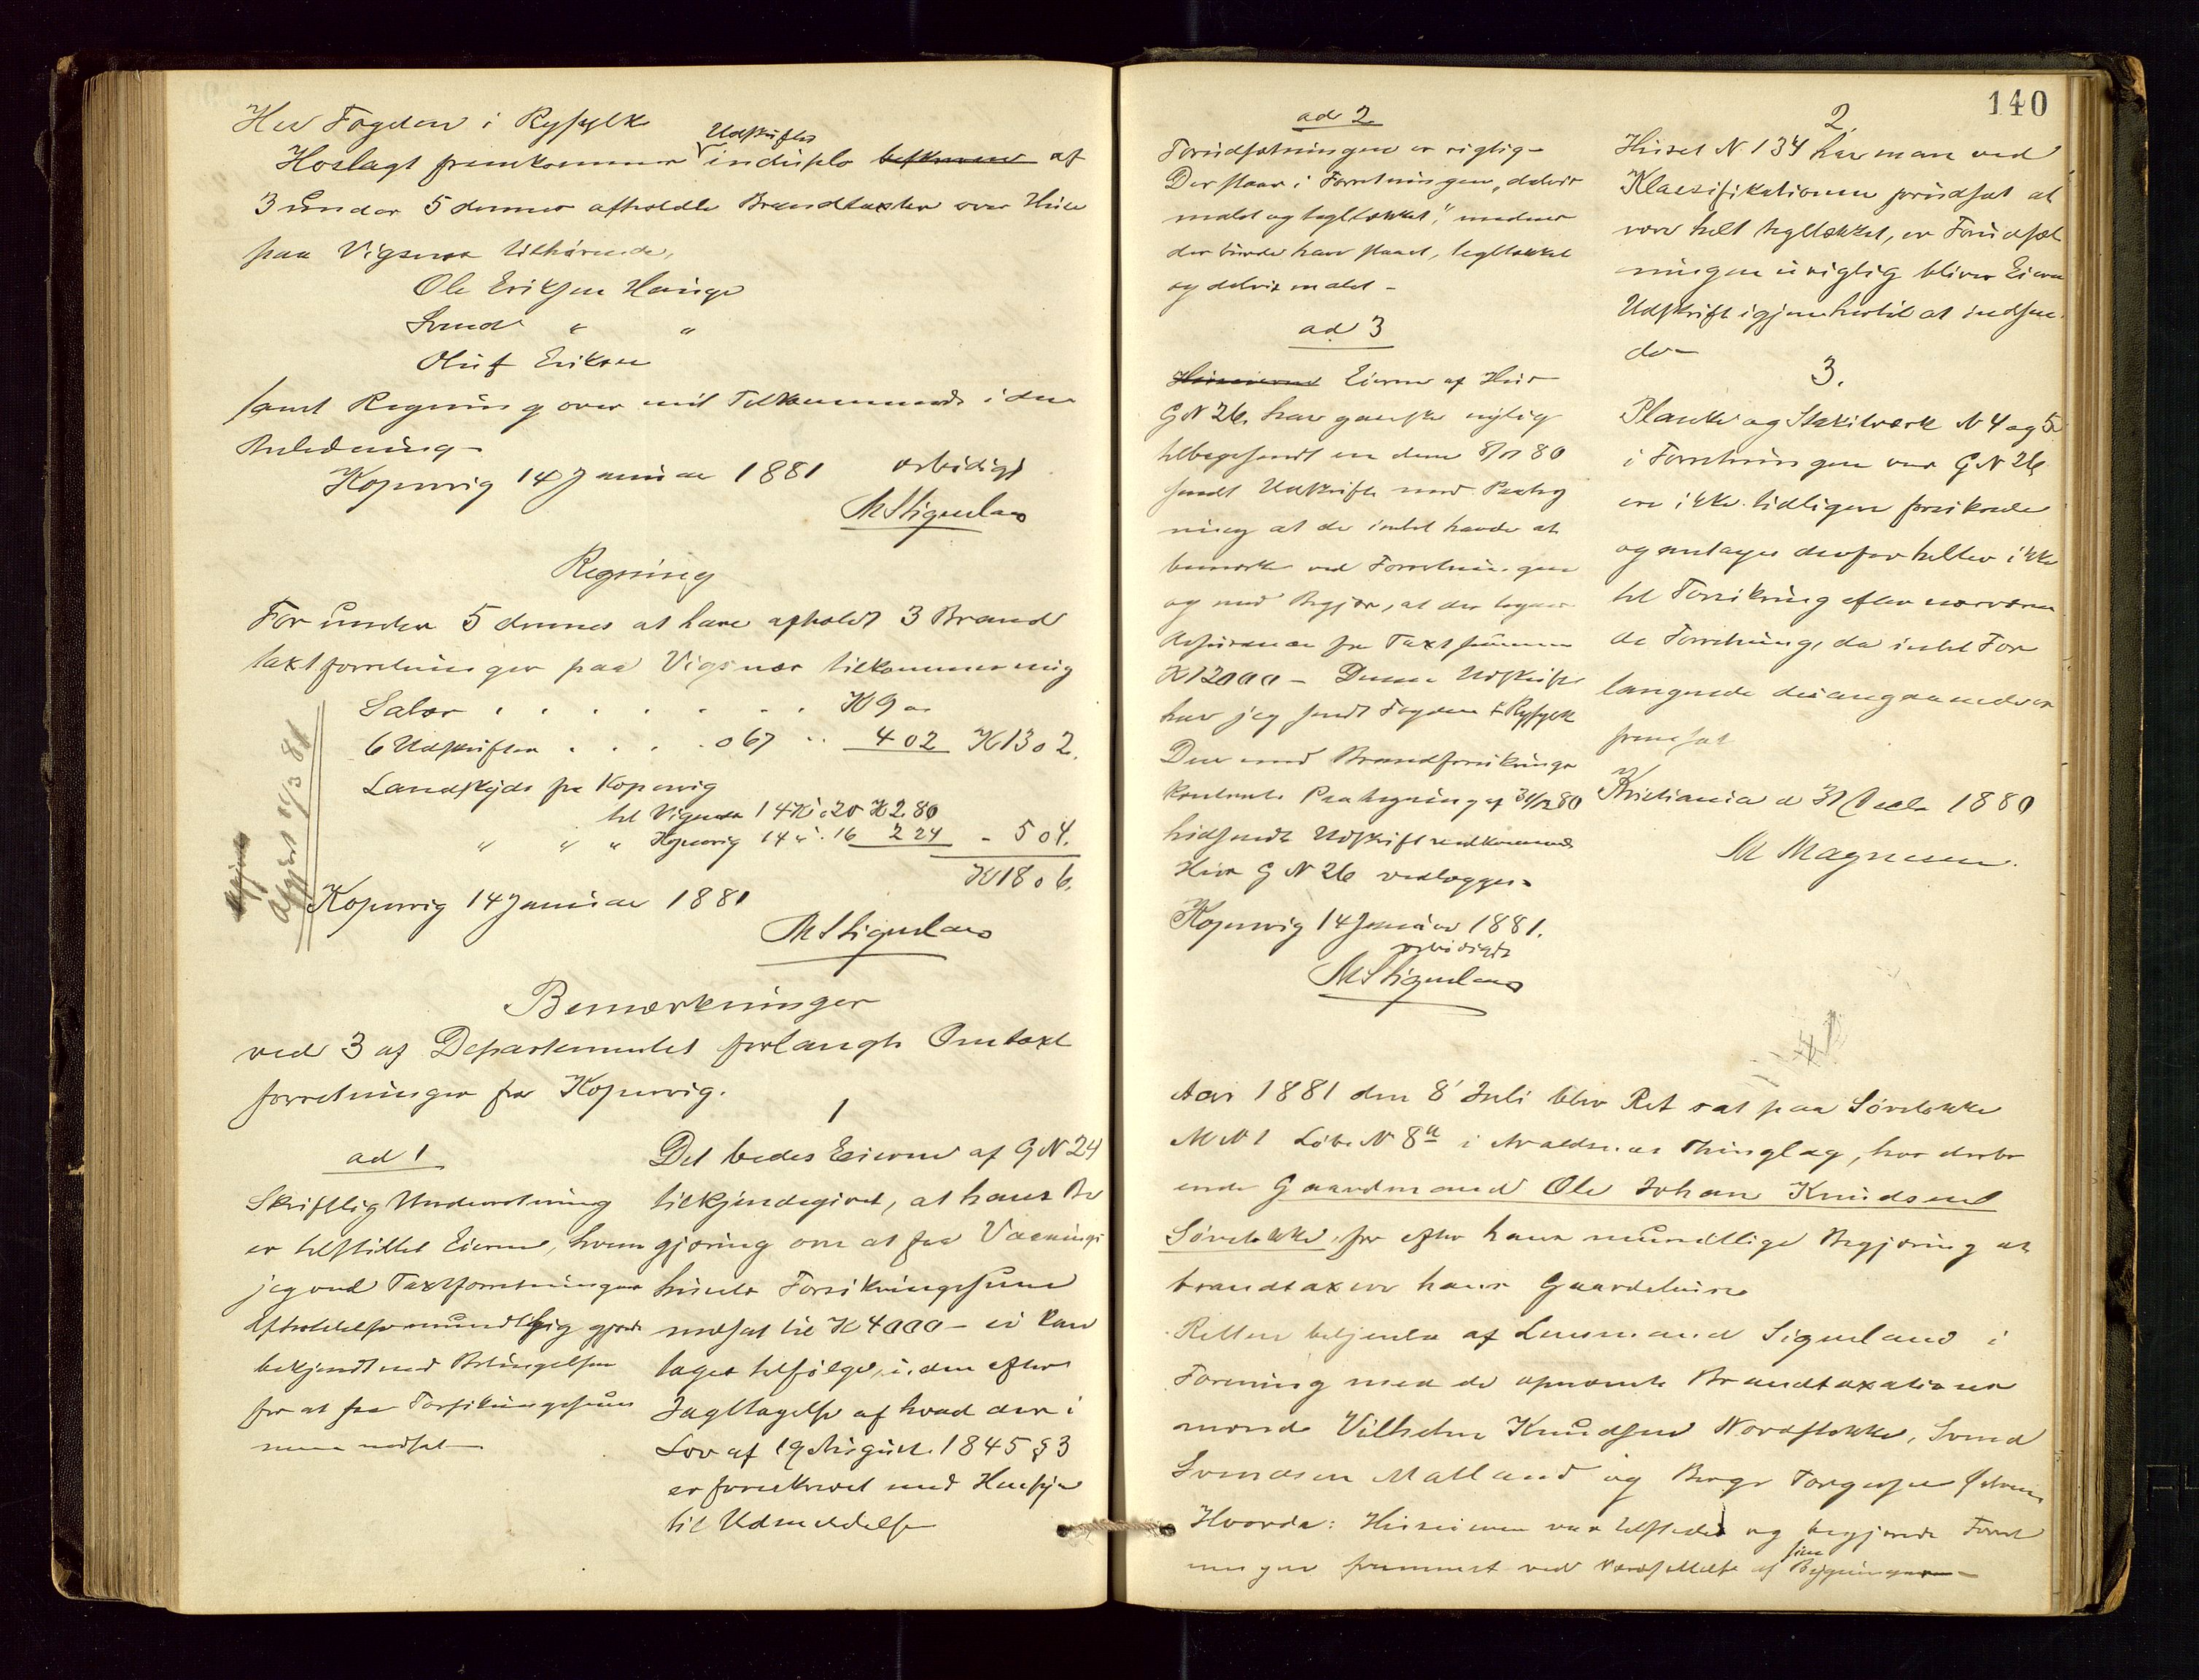 Her Fogden i Ryfylke
Hoslagt fremkommer Udskrifter induplo bekræver af
3 under 5 dennes afholdte Brandtaxter over Huse
paa Vigsnæs tilhørende,
Ole Eriksen Hauge
Svend " "
Oluf Eriksen
samt Regning over mit Tilkommende i den
Anledning -
Kopervig 14 Januar 1881 ærbødigst
M Sliguelans
Regning
For under 5 dennes at have afholdt 3 Brand
taxtforretninger paa Vigsnæs tilkommer mig
Salær . . . . . . . . K 9 "
6 Udskrifter . . . . o 67 . . 4 02 K 13 o 2.
Landskyds fra Kopervig
til Vigsnæs 14 K a 20 K 2.80
" " " Kopervig 14 " . 16 2 24 - 5 04.
K 18 o 6.
Afgjort 14/3 81
Kopervig 14 Januar 1881
Bemærkninger
ved 3 af Departementet forlangte Omtaxt
forretninger fra Kopervig.
ad 1
Skriftlig Underretning
er tilstillet Eieren, hvem
jeg ved Taxtforretningens
Afholdelse mundtlig gjorde
bekjendt med Betingelsen
for at faa Forsikringssum
men nedsat -
1
Det bedes Eieren af G N 24
tilkjendegivet, at hans Be
gjæring om at faa Vaanings
husets Forsikringssum
nedsat til K 4000 - ei kan
tages tilfølge, uden efter
Iagttagelse af hvad der i
Lov af 19 August 1845 § 3
er foreskrevet med Hensyn
til Udmeldelse
140
ad 2
Forudsætningen er rigtig -
Der staar i Forretningen "delvis
malet og tegltækket", medens
der burde have staaet, tegltækket
og delvis malet -
ad 3
Huseierne Eieren af Hus
G N 26 har ganske nylig
tilbagesendt en dem 8/11 80
sendt Udskrift med Paateg
ning at de intet havde at
bemærke ved Forretningen
og med Begjær, at der tegnes
Assurance for Taxtsummen
K 12000 - Denne Udskrift
har jeg sendt Fogden i Ryfylke
Den med Brandforsikrings
kontorets Paategning af 31/12 80
hidsendte Udskrift vedkommende
Hus G N 26 vedlægges -
Kopervig 14 Januar 1881.
ærbødigst
2.
Huset N. 134 har man ved
Klassifikationen forudsat at
være helt tegltækket, er Forudsæt
ningen urigtig bliver Eierens
Udskrift igjen hertil at indsen
de -
3.
Planke og Stakitværk N 4 og 5
i Forretningen over G N 26
ere ikke tidligere forsikrede
og antages derfor heller ikke
til Forsikring efter nærværen
de Forretning, da intet For
langende desangaaende er
fremsat
Kristiania d 31 Decbr 1880
M Magnesen.
Aar 1881 den 8' Juli blev Ret sat paa Sørstokke
M N 1 Løbe N 8a i Avaldsnæs Thinglag, hos derbo
ende Gaardmand Ole Johan Knudsen
Sørstokke, for efter hans mundtlige Begjæring at
brandtaxere hans Gaardshuse
Retten betjentes af Lensmand i
Forening med de opnævnte Brandtaxations
mænd Vilhelm Knudsen Nordstokke, Svend
Svendsen Matland og Børge Torgersen
Hvorda: Huseieren var tilstede og begjærede Forret
ningen fremmet ved Værdsættelse af sine Bygninger -